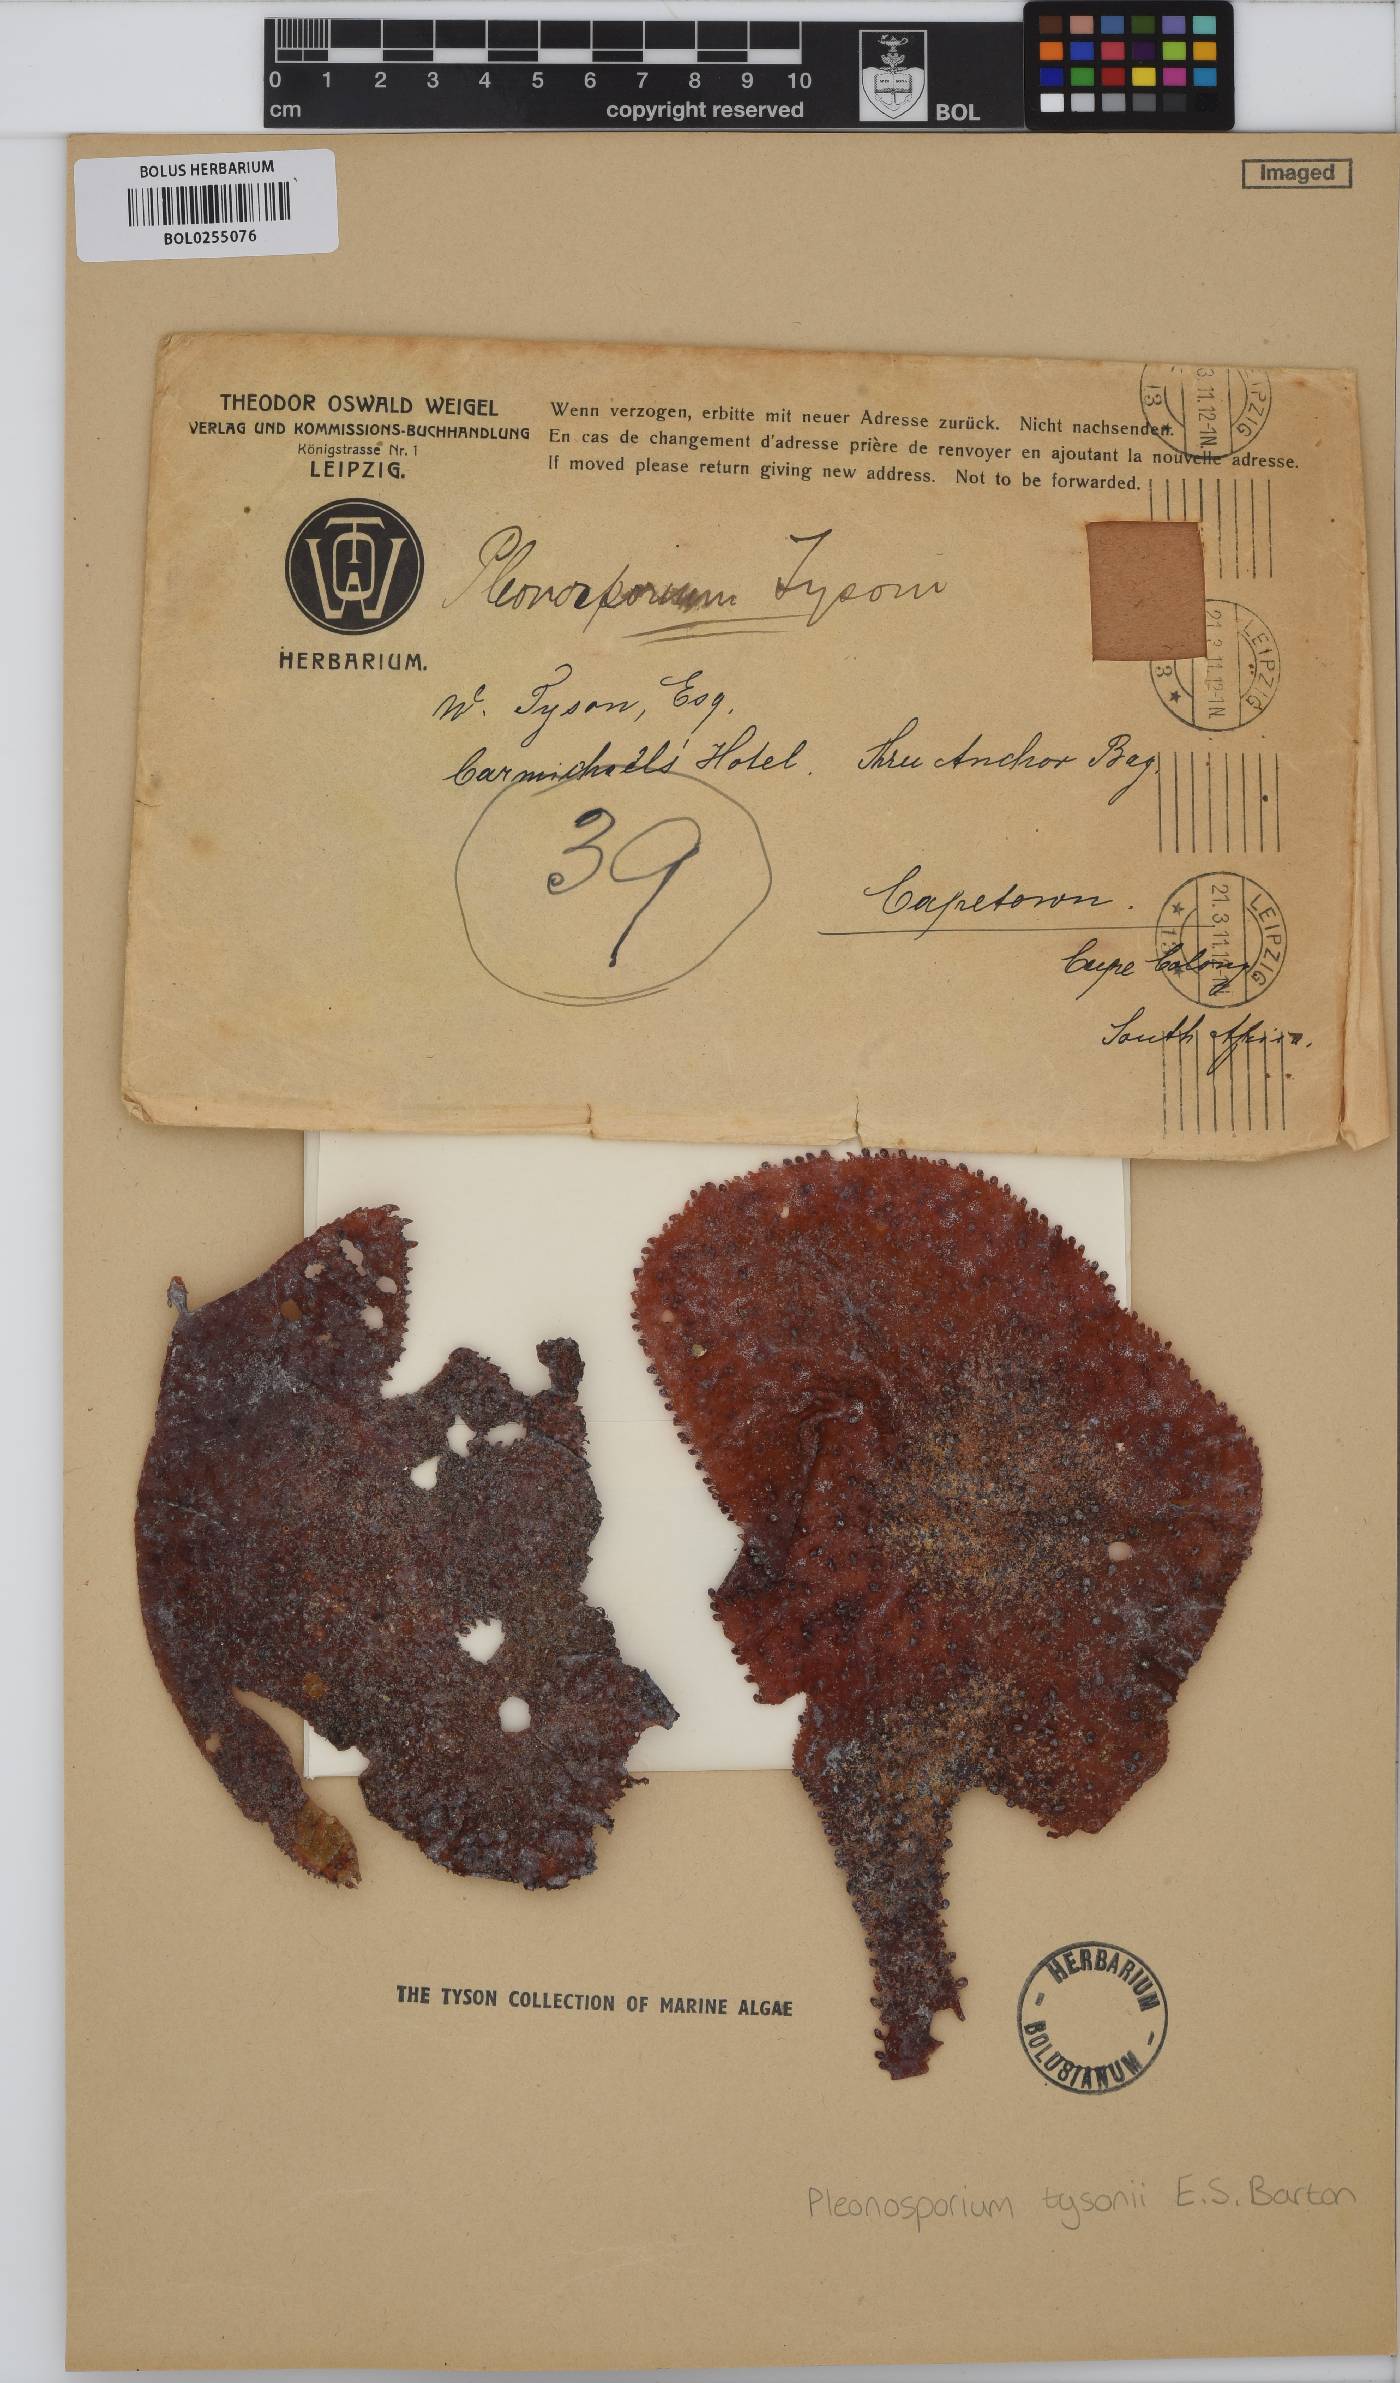 0 1 2 3 4 5 6 7 8 9 10
cm copyright reserved BOL
BOLUS HERBARIUM
BOL0255076
Imaged
THEODOR OSWALD WEIGEL
VERLAG UND KOMMISSIONS-BUCHHANDLUNG
Königstrasse Nr. 1
LEIPZIG.
HERBARIUM.
Wenn verzogen, erbitte mit neuer Adresse zurück. Nicht nachsenden.
En cas de changement d'adresse prière de renvoyer en ajoutant la nouvelle adresse.
If moved please return giving new address. Not to be forwarded.
Pleonosporium Tysoni
W. Tyson, Esq.
Carmichaels' Hotel. Three Anchor Bay.
39
Capetown.
Cape Colony
South Africa.
LEIPZIG
21.3.11.12-1N.
13
THE TYSON COLLECTION OF MARINE ALGAE
HERBARIUM
BOLUSIANUM
Pleonosporium tysonii E.S. Barton